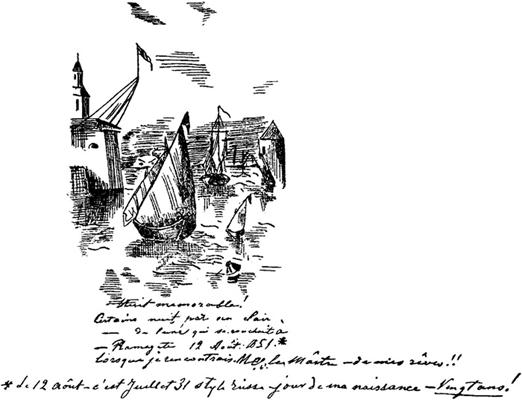 Nuit memorable!
Certaine nuit par un clair
— de lune qui se couchait à
— Ramsgate 12 Août 1851 *
lorsque je rencontrais M∴ le Maître — de mes rêves!!
* Le 12 Août — c'est Juillet 31 style russe jour de ma naissance — Vingt ans!